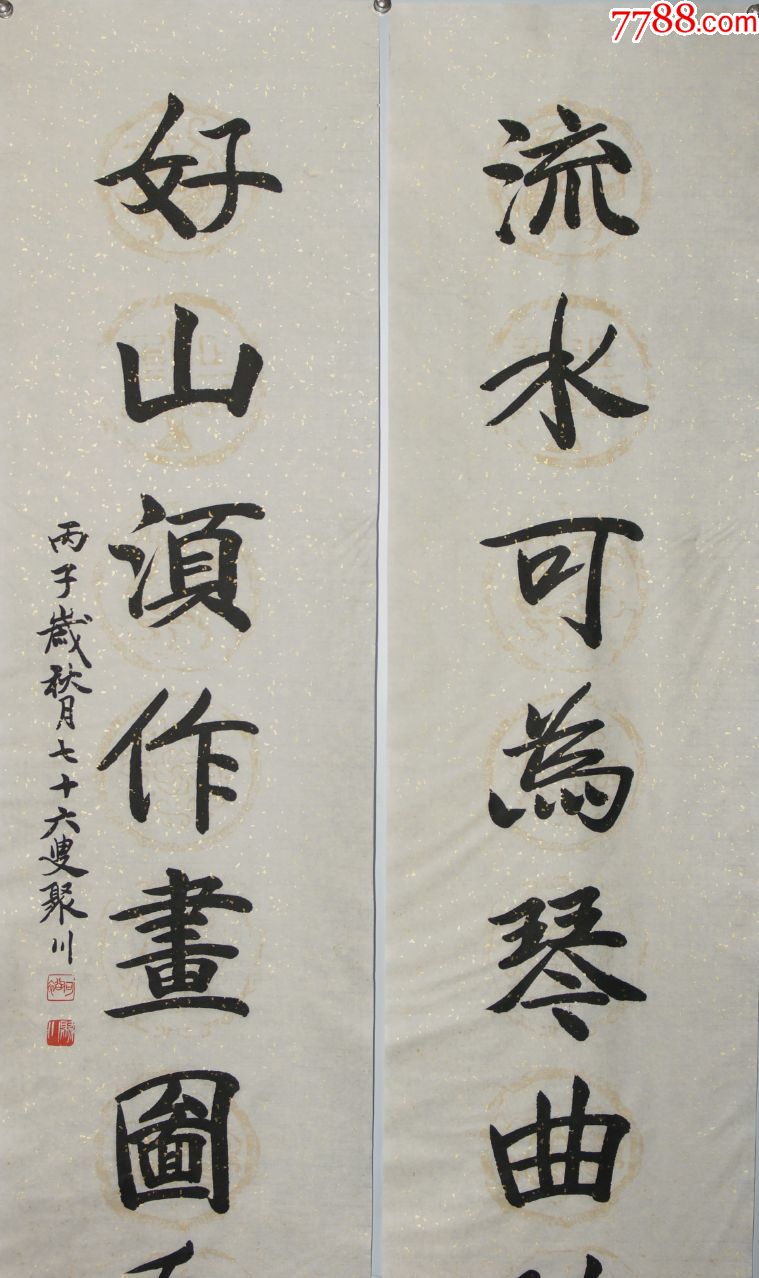 7788.com
流水可為琴曲
好山須作畫圖
丙子歲秋月七十六叟聚川